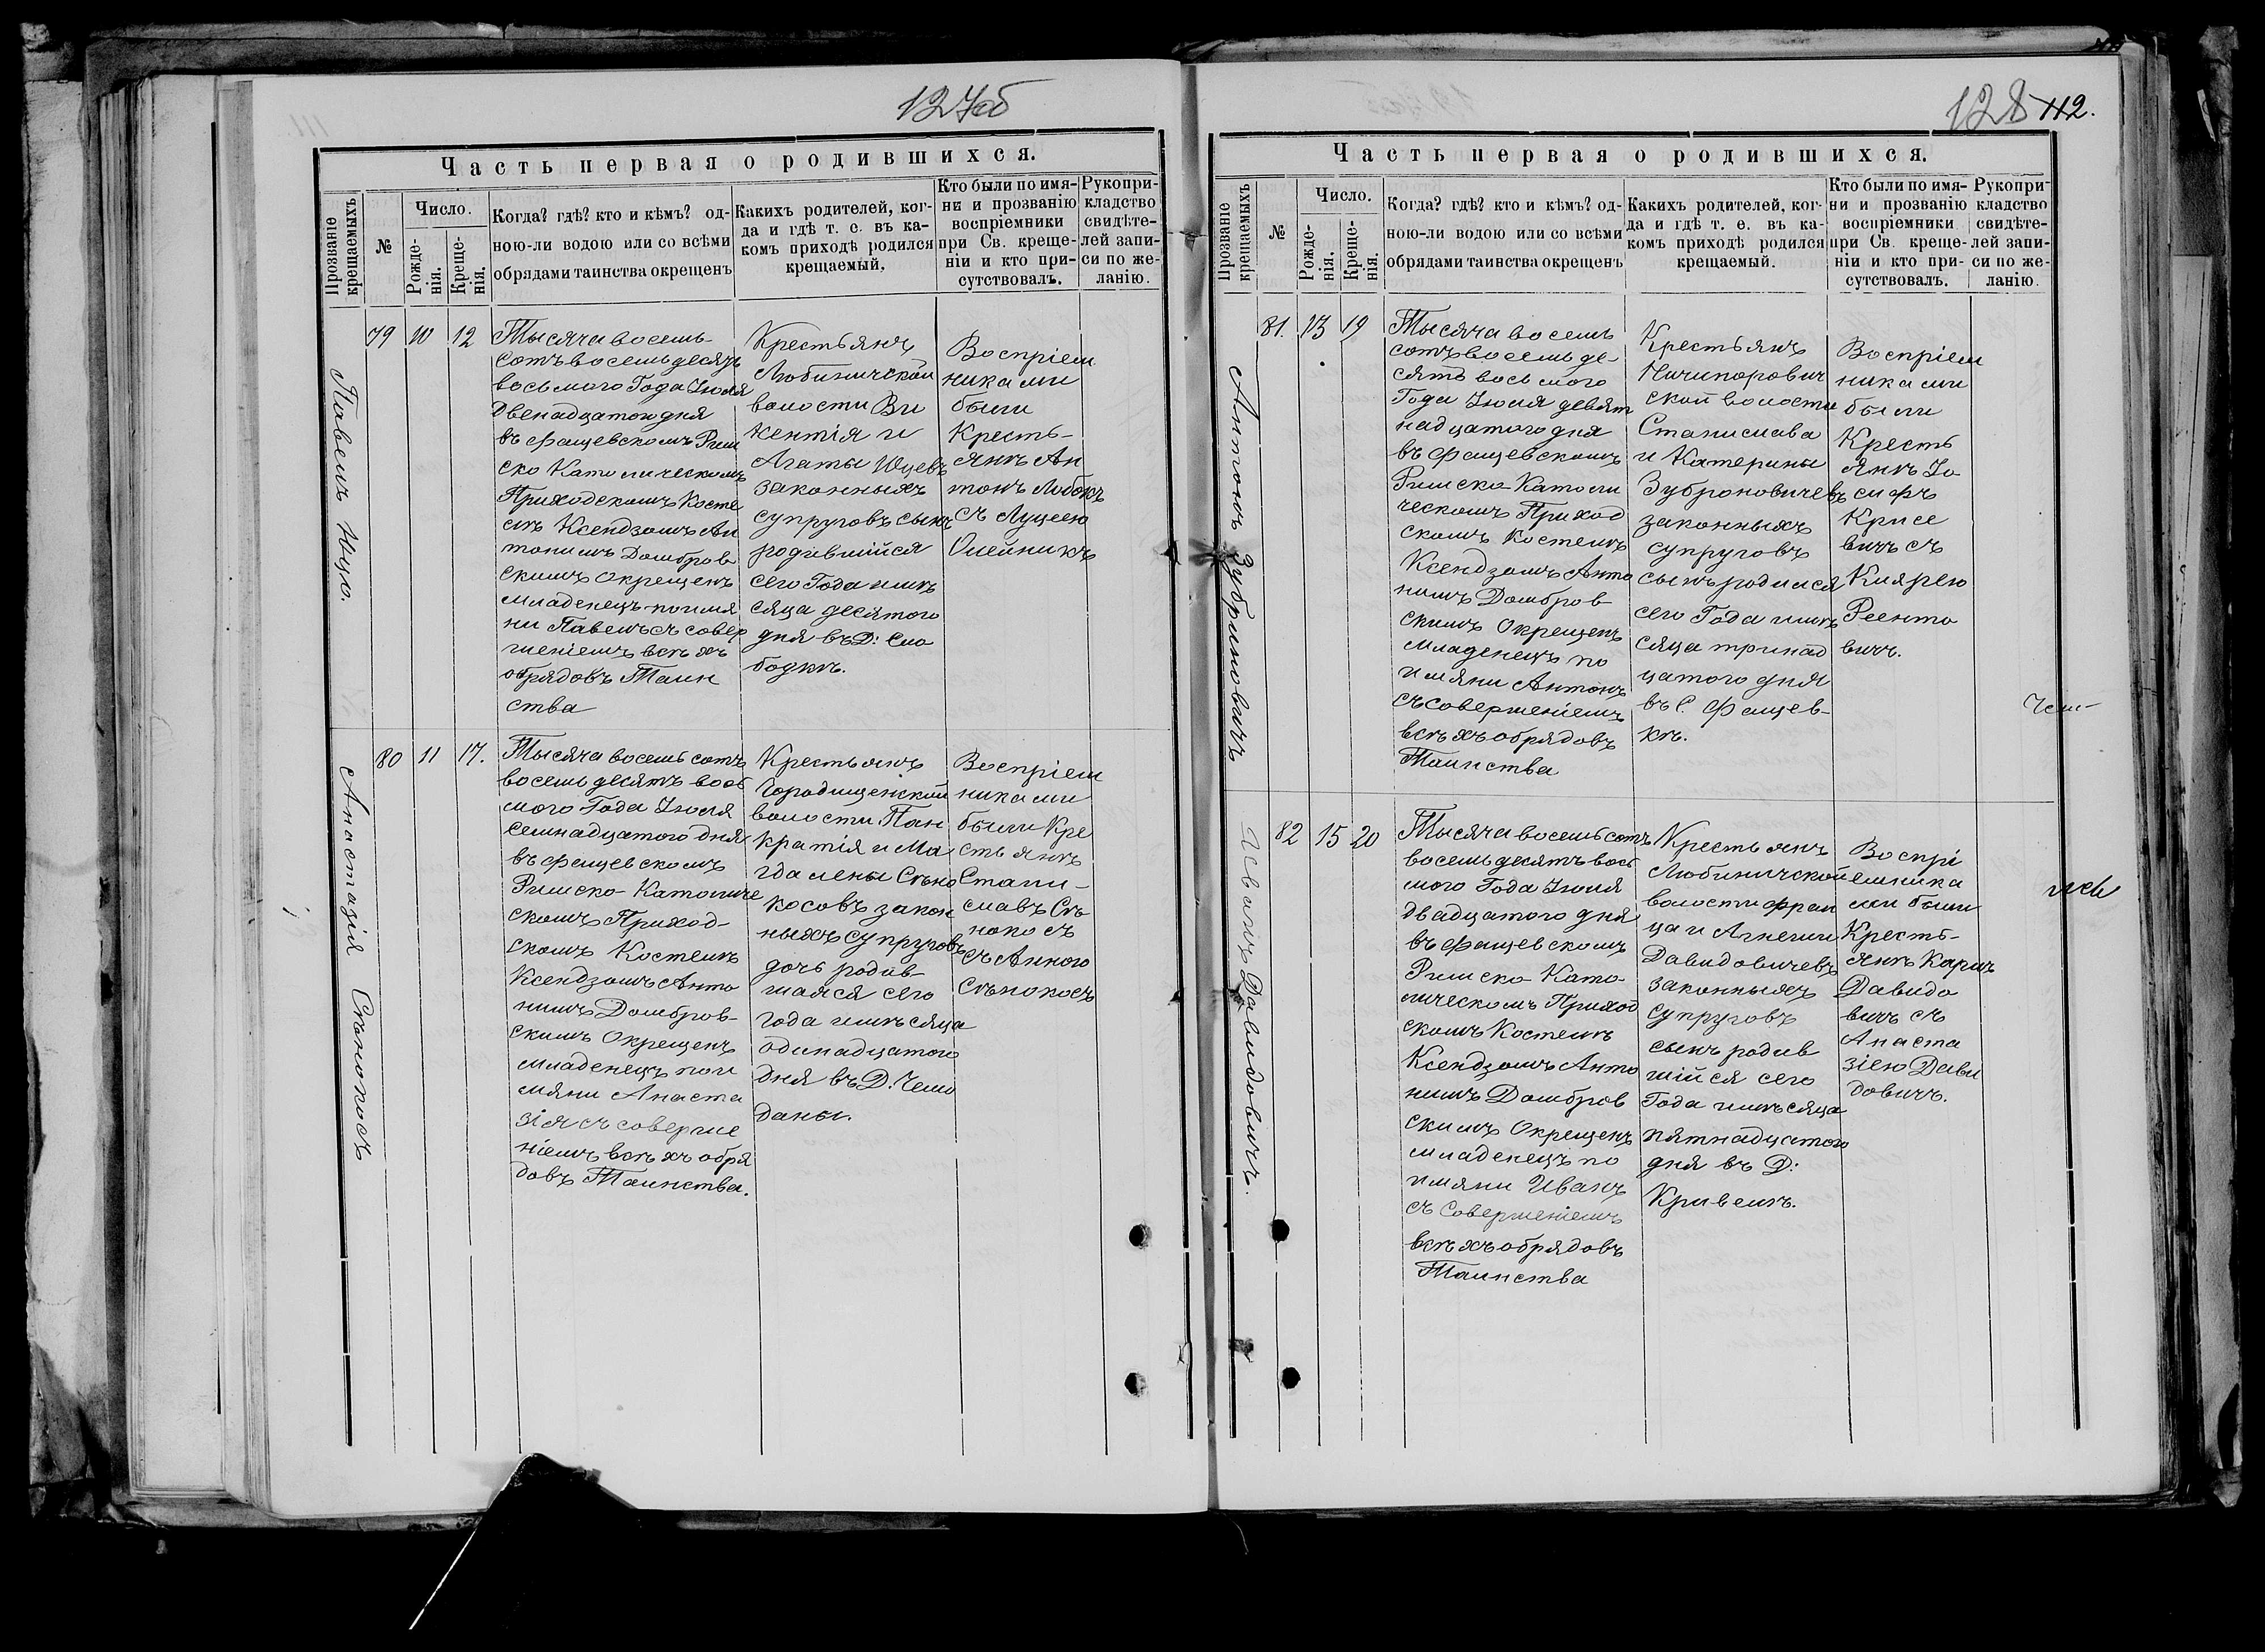 127об
Часть первая о родившихся.
Прозваніе крещаемыхъ
№
Число.
Рожде-
нія.
Креще-
нія.
Когда? гдѣ? кто и кѣмъ? од-
ною-ли водою или со всѣми
обрядами таинства окрещенъ
Какихъ родителей, ког-
да и гдѣ т. е. въ ка-
комъ приходѣ родился
крещаемый.
Кто были по имя-
ни и прозванію
воспріемники
при Св. креще-
ніи и кто при-
сутствовалъ.
Рукопри-
кладство
свидѣте-
лей запи-
си по же-
ланію.
Павелъ
79
10
12
Тысяча восемь
сотъ восемьдесятъ
восьмого Года Іюля
Двенадцатого дня
въ Фащевскомъ Рим
ско Католическомъ
Приходскомъ Косте
лѣ Ксендзомъ Ан
тонимъ Домбров
скимъ Окрещенъ
младенецъ по имя
ни Павелъ съ совер
шеніемъ всѣхъ
обрядовъ Таин
ства
Крестьянъ
Любиничской
волости Ви
кентія и
Агаты
законныхъ
супруговъ сынъ
родившійся
сего Года и мѣ
сяца десятого
дня въ Д: Сло
бодкѣ.
Воспріем
никами
были
Кресть-
янѣ Ан
тонъ Лобокъ
съ Луцею
Олейникъ
Анастазія Сѣнокосъ
80
11
17.
Тысяча восемьсотъ
восемьдесятъ вось
мого Года Іюля
семнадцатого дня
въ Фащевскомъ
Римско-Католиче
скомъ Приход-
скомъ Костелѣ
Ксендзомъ Анто
нимъ Домбров-
скимъ Окрещенъ
младенецъ по и
мяни Анаста
зія съ соверше
ніемъ всѣхъ обря
довъ Таинства.
Крестьянъ
Городищенской
волости Пан
кратія и Ма
гдалены Сѣно
косовъ закон
ныхъ супруговъ
дочь родив-
шаяся сего
года и мѣсяца
одинадцатого
дня въ Д. Чемо
даны.
Воспріем
никами
были Кре
стьянѣ
Стани-
славъ Сѣ
нокосъ
съ Анною
Сѣнокосъ
128 112.
Часть первая о родившихся.
Прозваніе крещаемыхъ
№
Число.
Рожде-
нія.
Креще-
нія.
Когда? гдѣ? кто и кѣмъ? од-
ною-ли водою или со всѣми
обрядами таинства окрещенъ
Какихъ родителей, ког-
да и гдѣ т. е. въ ка-
комъ приходѣ родился
крещаемый.
Кто были по имя-
ни и прозванію
воспріемники
при Св. креще-
ніи и кто при-
сутствовалъ.
Рукопри-
кладство
свидѣте-
лей запи-
си по же-
ланію.
Антонъ Зубриновичъ
81.
13
19
Тысяча восемь
сотъ восемьде
сятъ восьмого
Года Іюля девят
надцатого дня
въ Фащевскомъ
Римско-Католи
ческомъ Приход
скомъ Костелѣ
Ксендзомъ Анто
нимъ Домбров
скимъ Окрещенъ
младенецъ по
имяни Антонъ
съ совершеніемъ
всѣхъ обрядовъ
Таинства
Крестьянъ
Ничипорович
ской волости
Станислава
и Катерины
Зуброновичевъ
законныхъ
супруговъ
сынъ родился
сего Года и мѣ
сяца тринад
цатого дня
въ С. Фащев-
кѣ.
Воспріем
никами
были
Кресть
янѣ Іо
сифъ
Крисе
вичъ съ
Клярею
Реенто
вичъ.
Иванъ Давидовичъ.
82
15
20
Тысяча восемьсотъ
восемьдесятъ вось
мого Года Іюля
двадцатого дня
въ Фащевскомъ
Римско-Като
лическомъ Приход
скомъ Костелѣ
Ксендзомъ Анто
нимъ Домбров
скимъ Окрещенъ
младенецъ по
имяни Иванъ
съ Совершеніемъ
всѣхъ обрядовъ
Таинства
Крестьянъ
Любиничской
волости Фран
ца и Агнешки
Давидовичевъ
законныхъ
супруговъ
сынъ родив
шійся сего
Года и мѣсяца
пятнадцатого
дня въ Д:
Кривелѣ.
Воспрі
емника
ми были
Кресть-
янѣ Карлъ
Давидо
вичъ съ
Анаста
зіею Дави
довичъ.